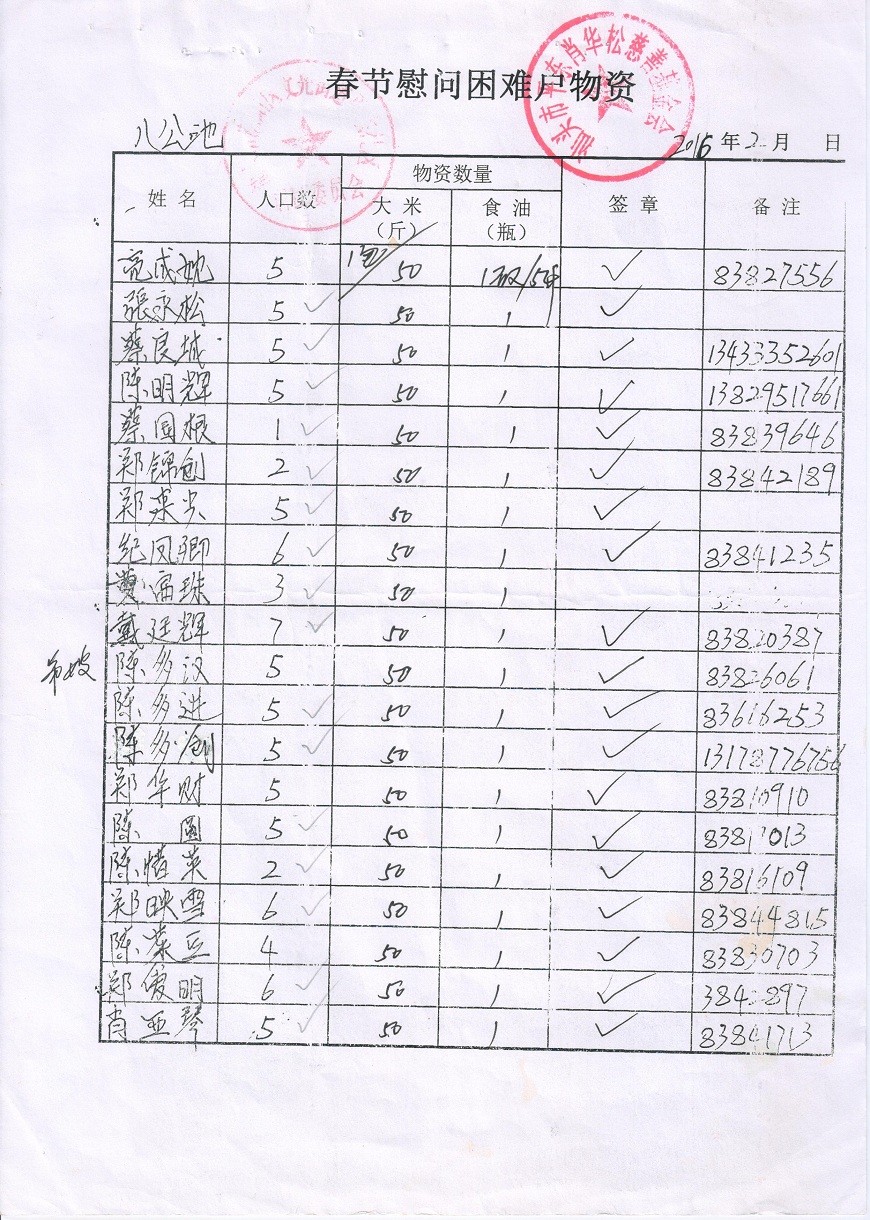 春节慰问困难户物资
汕头市 东肖华松慈善基金会
八公地
2015年2月 日
姓名 人口数 物资数量 签章 备注
大米(斤) 食油(瓶)
5 1包 50 1瓶/5斤 ✓ 83827556
張永松 5 ✓ 50 1 ✓
蔡良城 5 ✓ 50 1 ✓ 13433352601
陈明辉 5 ✓ 50 1 ✓ 13829517661
蔡国根 1 ✓ 50 1 ✓ 83839646
郑锦创 2 ✓ 50 1 ✓ 83842189
郑 5 ✓ 50 1 ✓
纪凤卿 6 ✓ 50 1 ✓ 83841235
富珠 3 ✓ 50 1
戴廷辉 7 ✓ 50 1 ✓ 83820387
陈多汉 5 50 1 ✓ 83826061
陈多进 5 ✓ 50 1 ✓ 83616253
陈多创 5 ✓ 50 1 ✓ 13178776756
郑华财 5 50 1 ✓ 83810910
陈 5 ✓ 50 1 ✓
陈惜英 2 ✓ 50 1 ✓ 83816109
郑映雪 6 ✓ 50 1 ✓ 83844815
陈 4 50 1 ✓ 83830703
郑俊明 6 ✓ 50 1 ✓
肖亚琴 5 ✓ 50 1 ✓ 83841713